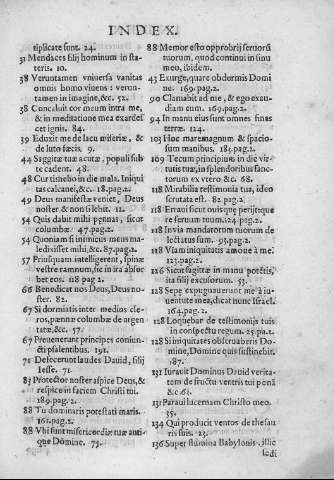 INDEX.
tiplicate sunt. 24.
31 Mendaces filij hominum in sta-
teris. 10.
38 Veruntamen vniuersa vanitas
omnis homo viuens : verun-
tamen in imagine, &c. 52.
38 Concaluit cor meum intra me,
& in meditatione mea exardes
cet ignis. 84.
39 Eduxit me de lacu miseriæ, &
de luto fæcis. 9.
44 Sagittæ tuæ acutæ, populi sub
te cadent. 48.
48 Cur timebo in die mala. Iniqui
tas calcanei, &c. 18. pag. 2.
49 Deus manifestè veniet, Deus
noster & non silebit. 12.
54 Quis dabit mihi pennas, sicut
columbæ 47. pag. 2.
54 Quoniam si inimicus meus ma-
ledixisset mihi, &c. 87. pag. 2.
57 Priusquam intelligerent, spinæ
vestræ ramnum, sic in ira absor
bet eos. 118 pag 2.
66 Benedicat nos Deus, Deus no-
ster. 82.
67 Si dormiatis inter medios cle-
ros, pennæ columbæ de argen
tatæ, &c. 57.
67 Preuenerunt principes coniun-
cti psallentibus. 191.
71 Defecerunt laudes Dauid, filij
Iesse. 71
83 Protector noster aspice Deus, &
respice in faciem Christi tui.
189. pag. 2.
88 Tu dominaris potestati maris.
161. pag. 2.
88 Vbi sunt misericordiæ tuæ anti-
quæ Domine. 75.
88 Memor esto opprobrij seruorũ
tuorum, quod continui in sinu
meo, ibidem.
43 Exurge, quare obdormis Domi
ne. 169. pag. 2.
90 Clamabit ad me, & ego exau-
diam eum. 169. pag. 2.
94 In manu eius sunt omnes fines
terræ. 124.
103 Hoc mare magnum & spacio-
sum manibus. 185. pag. 2.
109 Tecum principium in die vir-
tutis tuæ, in splendoribus sanc-
torum ex vtero &c. 68.
118 Mirabilia testimonia tua, ideo
scrutata est. 82 pag 2.
118 Erraui sicut ouis quæ perijt quæ
re seruum tuum. 124. pag. 2.
118 In via mandatorum tuorum de
lectatus sum. 93. pag. 2.
118 Viam iniquitatis amoue à me.
123. pag. 2.
126 Sicut sagittæ in manu potẽtis,
ita filij excusorum. 53.
128 Sepe expugnauerunt me à iu-
uentute mea, dicat nunc Israel.
164. pag. 2.
118 Loquebar de testimonijs tuis
in conspectu regum. 25 pa. 2.
128 Si iniquitates obseruaberis Do-
mine, Domine quis sustinebit.
87.
131 Iurauit Dominus Dauid verita-
tem de fructu ventris tui ponã
&c 64.
131 Paraui lucernam Christo meo.
35.
134 Qui producit ventos de thesau
ris suis. 23.
136 Super flumina Babylonis, illic
sedi